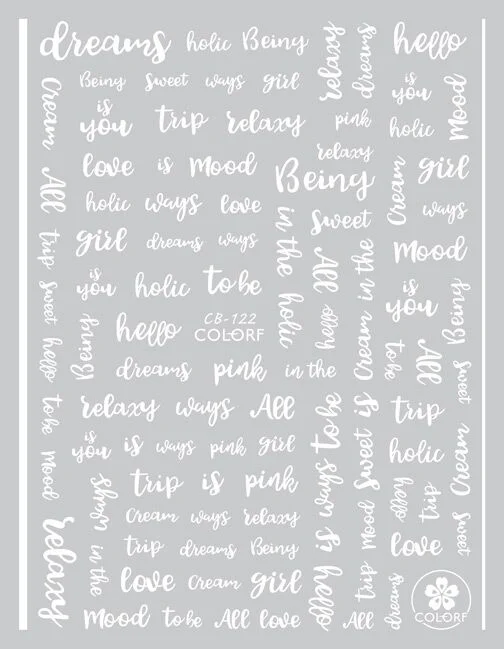 dreams holic Being
hello
relaxy
dreams
Being Sweet ways girl
is
you
Mood
Cream
is
you trip relaxy
pink
holic
relaxy
love is Mood
Being
Cream
girl
All
holic ways love
ways
in the holic
Sweet
girl dreams ways
trip
All
Cream in the
Mood
is
you holic to be
sweet
is
you
Being
hello
CB-122
COLORF
hello
Being
hello
to be
All
dreams pink in the
Sweet
relaxy ways All
to be
is ways to be
Sweet is
trip
is
you is ways pink girl
holic
Cream
mood
trip is pink
ways
hello
trip
Cream ways relaxy
in the
mood
Sweet
relaxy
trip dreams Being
love
love Cream girl
hello
trip
dreams
Mood to be All love
All
COLORF